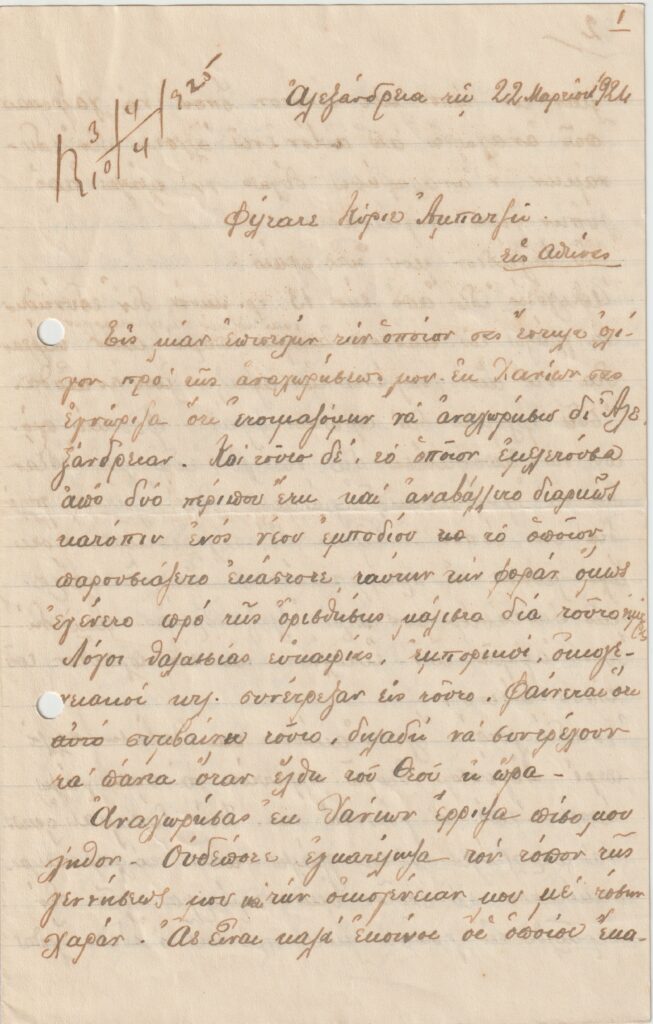 1
R 3/4 925
10 4
Ἀλεξάνδρεια τῇ 22 Μαρτίου 924
Φίλτατε Κύριε Ἀμπατζῆ.
εἰς Ἀθήνας
Εἰς μίαν ἐπιστολὴν τὴν ὁποίαν σας ἔστειλα ὀλί-
γον πρὸ τῆς ἀναχωρήσεώς μου ἐκ Χανίων σας
ἐγνώρισα ὅτι ἑτοιμαζόμην νὰ ἀναχωρήσω δι' Ἀλε
ξάνδρειαν. Καὶ τοῦτο δέ, τὸ ὁποῖον ἐμελετοῦσα
ἀπὸ δύο περίπου ἔτη καὶ ἀναβάλλετο διαρκῶς
κατόπιν ἑνὸς νέου ἐμποδίου τὸ ὁποῖον
παρουσιάζετο ἑκάστοτε, ταύτην τὴν φορὰν ὅμως
ἐγένετο πρὸ τῆς ὁρισθείσης μάλιστα διὰ τοῦτο
Λόγοι θαλασσίας εὐκαιρίας, ἐμπορικοί, οἰκογε-
νειακοὶ κτλ. συνέτρεξαν εἰς τοῦτο. Φαίνεται ὅτι
αὐτὸ συμβαίνει τοῦτο, δηλαδὴ νὰ συντρέχουν
τὰ πάντα ὅταν ἔλθῃ τοῦ Θεοῦ ἡ ὥρα -
Ἀναχωρήσας ἐκ Χανίων ἔρριψα πίσω μου
λίθον - Οὐδέποτε ἐγκατέλειψα τὸν τόπον τῆς
γεννήσεώς μου καὶ τὴν οἰκογένειάν μου μὲ τόσην
χαράν. Ἂς εἶναι καλὰ ἐκεῖνοι οἱ ὁποῖοι ἔκα-